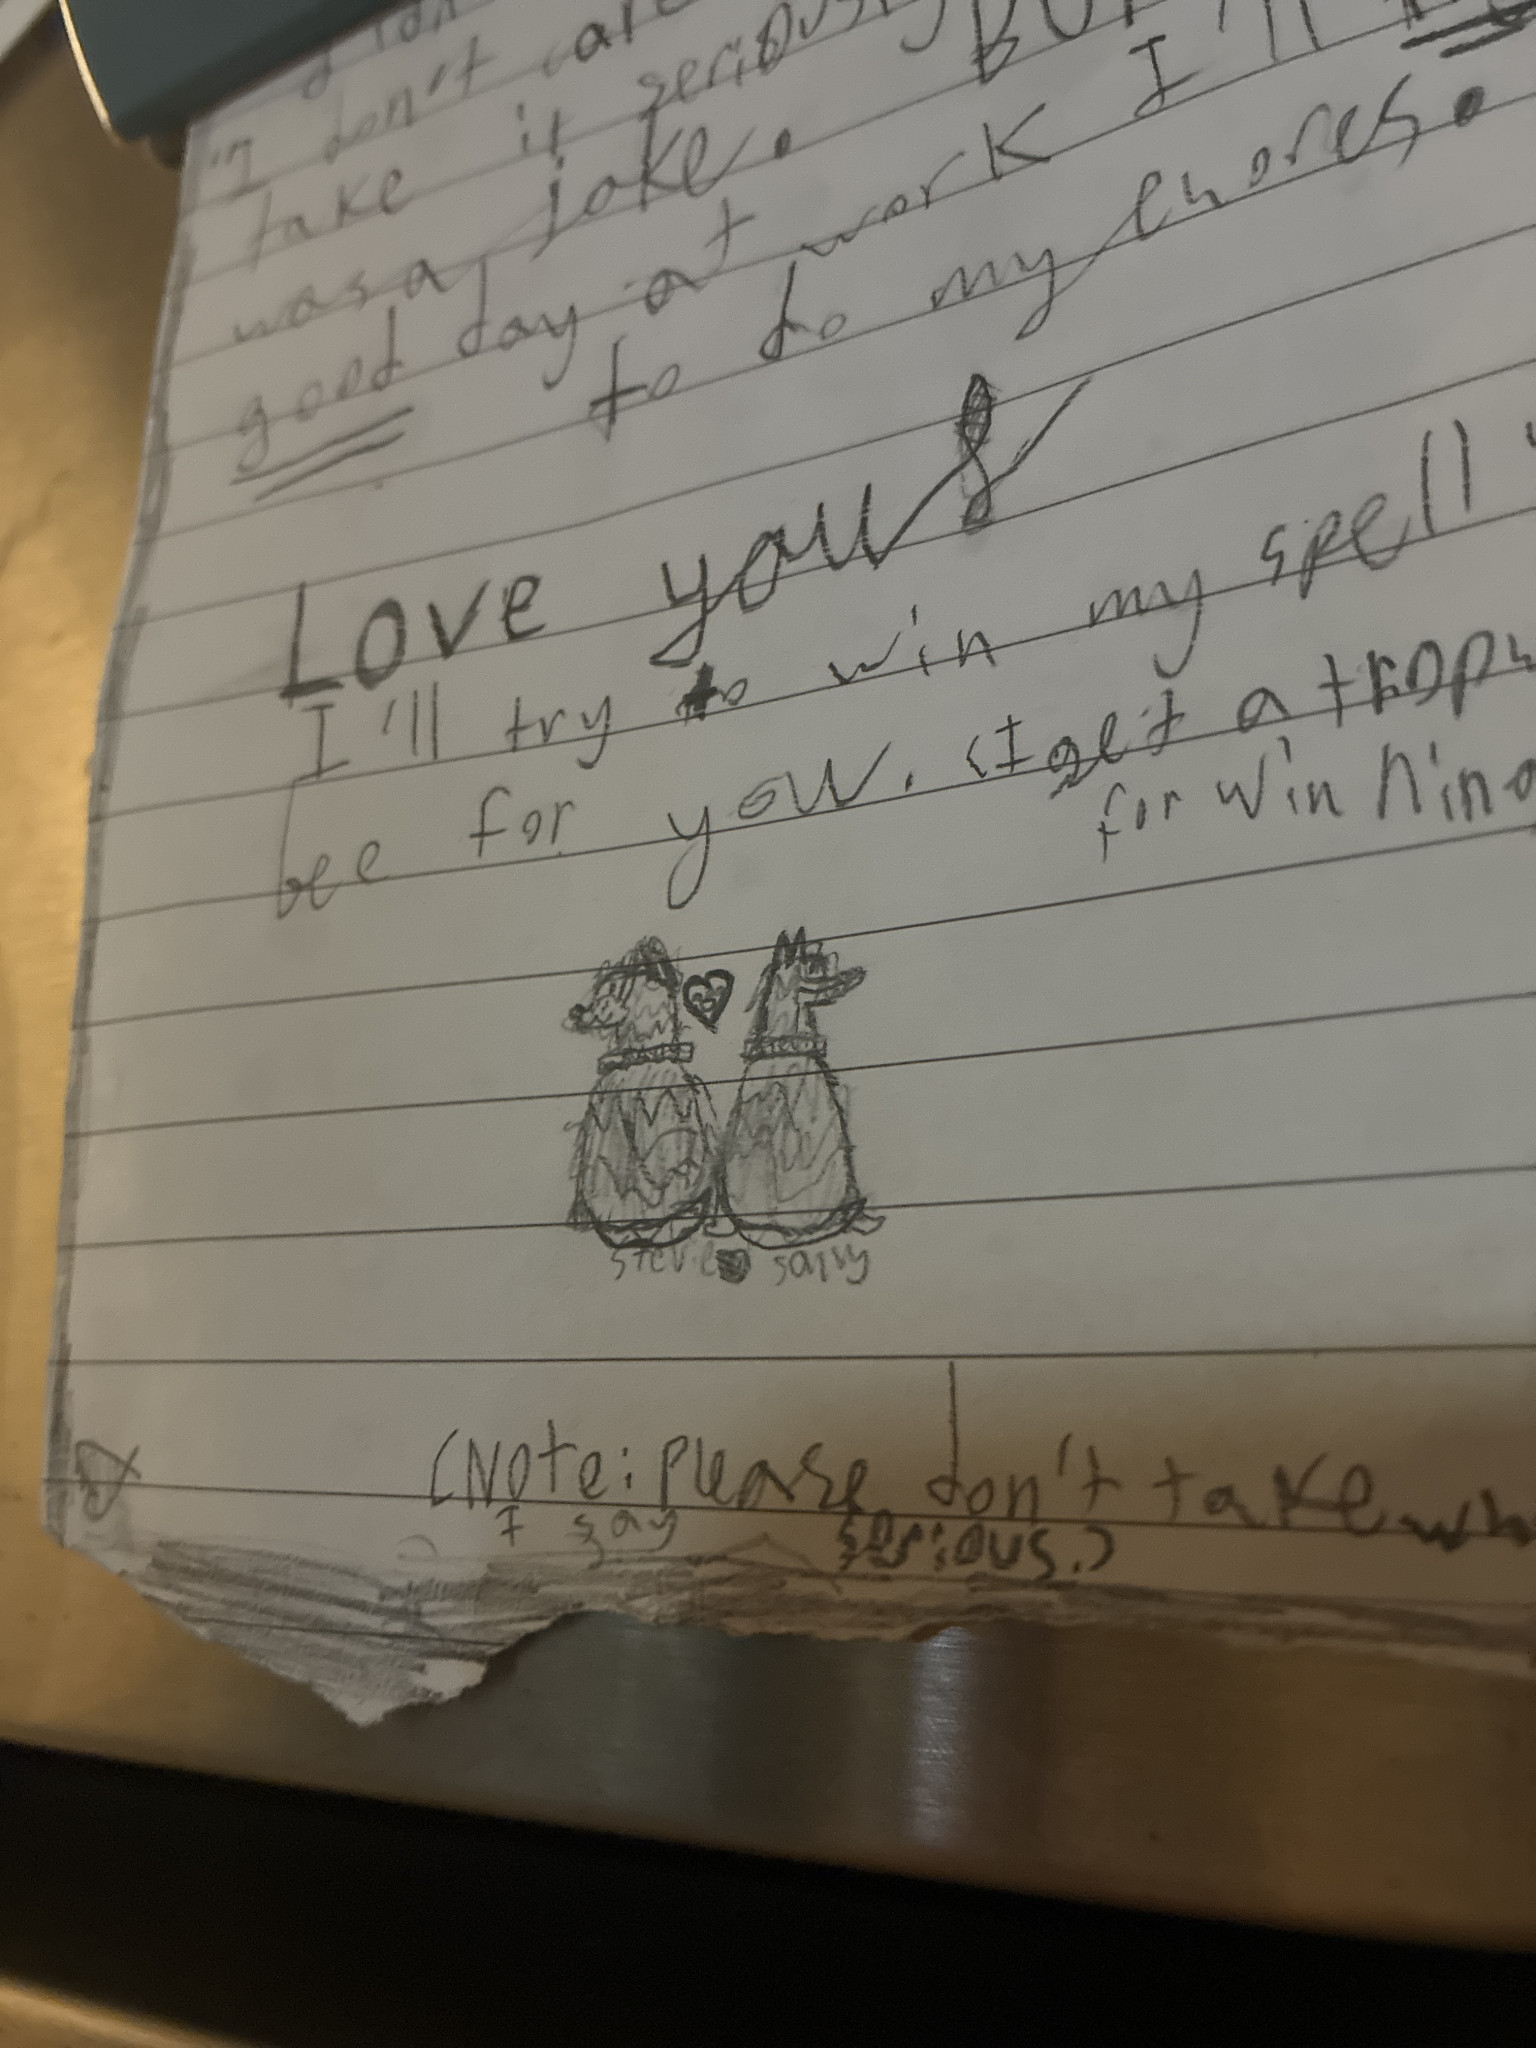 "I don't
take it seriously
was a joke. I'll
good day at work I
to do my chores.
Love you
I'll try to win my spell
bee for you. (I get a trophy
for winning
Stevie Sally
(Note: Please don't take
I say serious.)